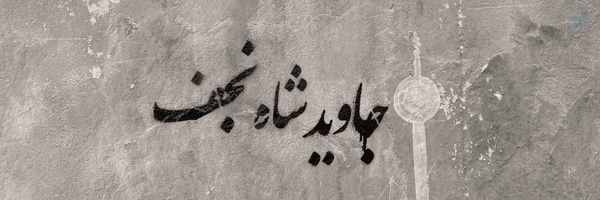 جاوید شاه نجف